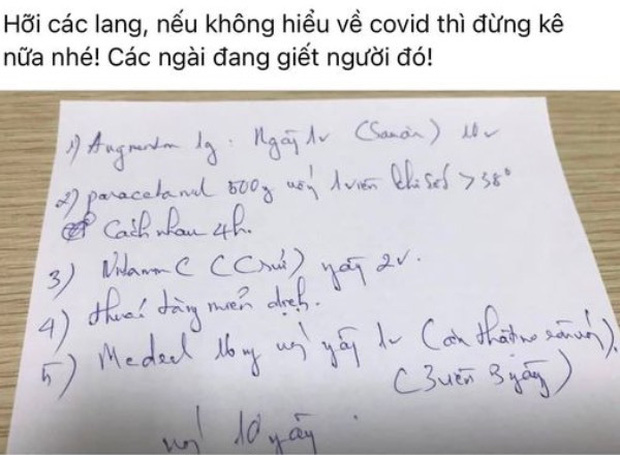 Hỡi các lang, nếu không hiểu về covid thì đừng kê
nữa nhé! Các ngài đang giết người đó!
1) Augmentin 1g : Ngày 1v 10v
2) paracetamol 500g uống 1 viên khi sốt > 38°
Cách nhau 4h.
3) Vitamin C (C sủi) ngày 2v.
4) thuốc tăng miễn dịch.
5) Medrol 16mg uống ngày 1v
(3 viên 3 ngày)
uống 10 ngày